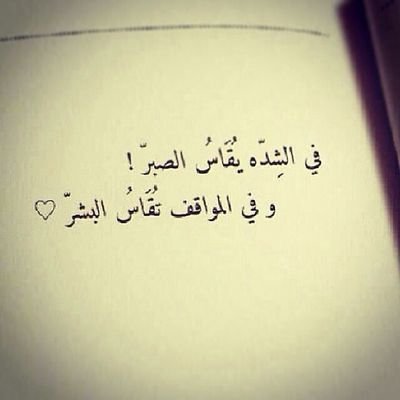 في الشِدّه يُقَاسُ الصبرّ !
و في المواقف تُقَاسُ البشرّ ♡